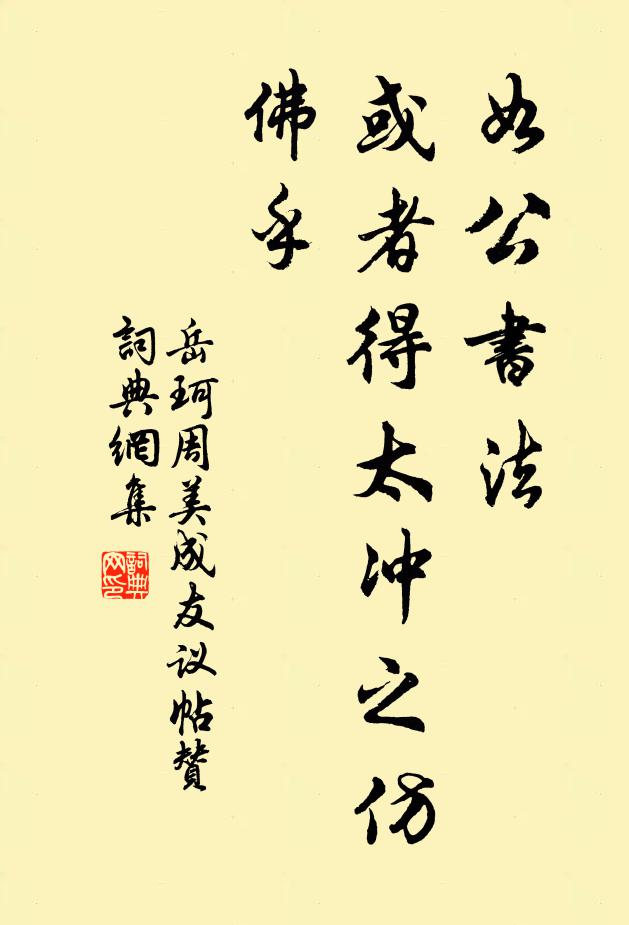 如公書法
或者得太冲之仿
佛乎
岳珂周美成友议帖贊
詞典網集
詞典网印